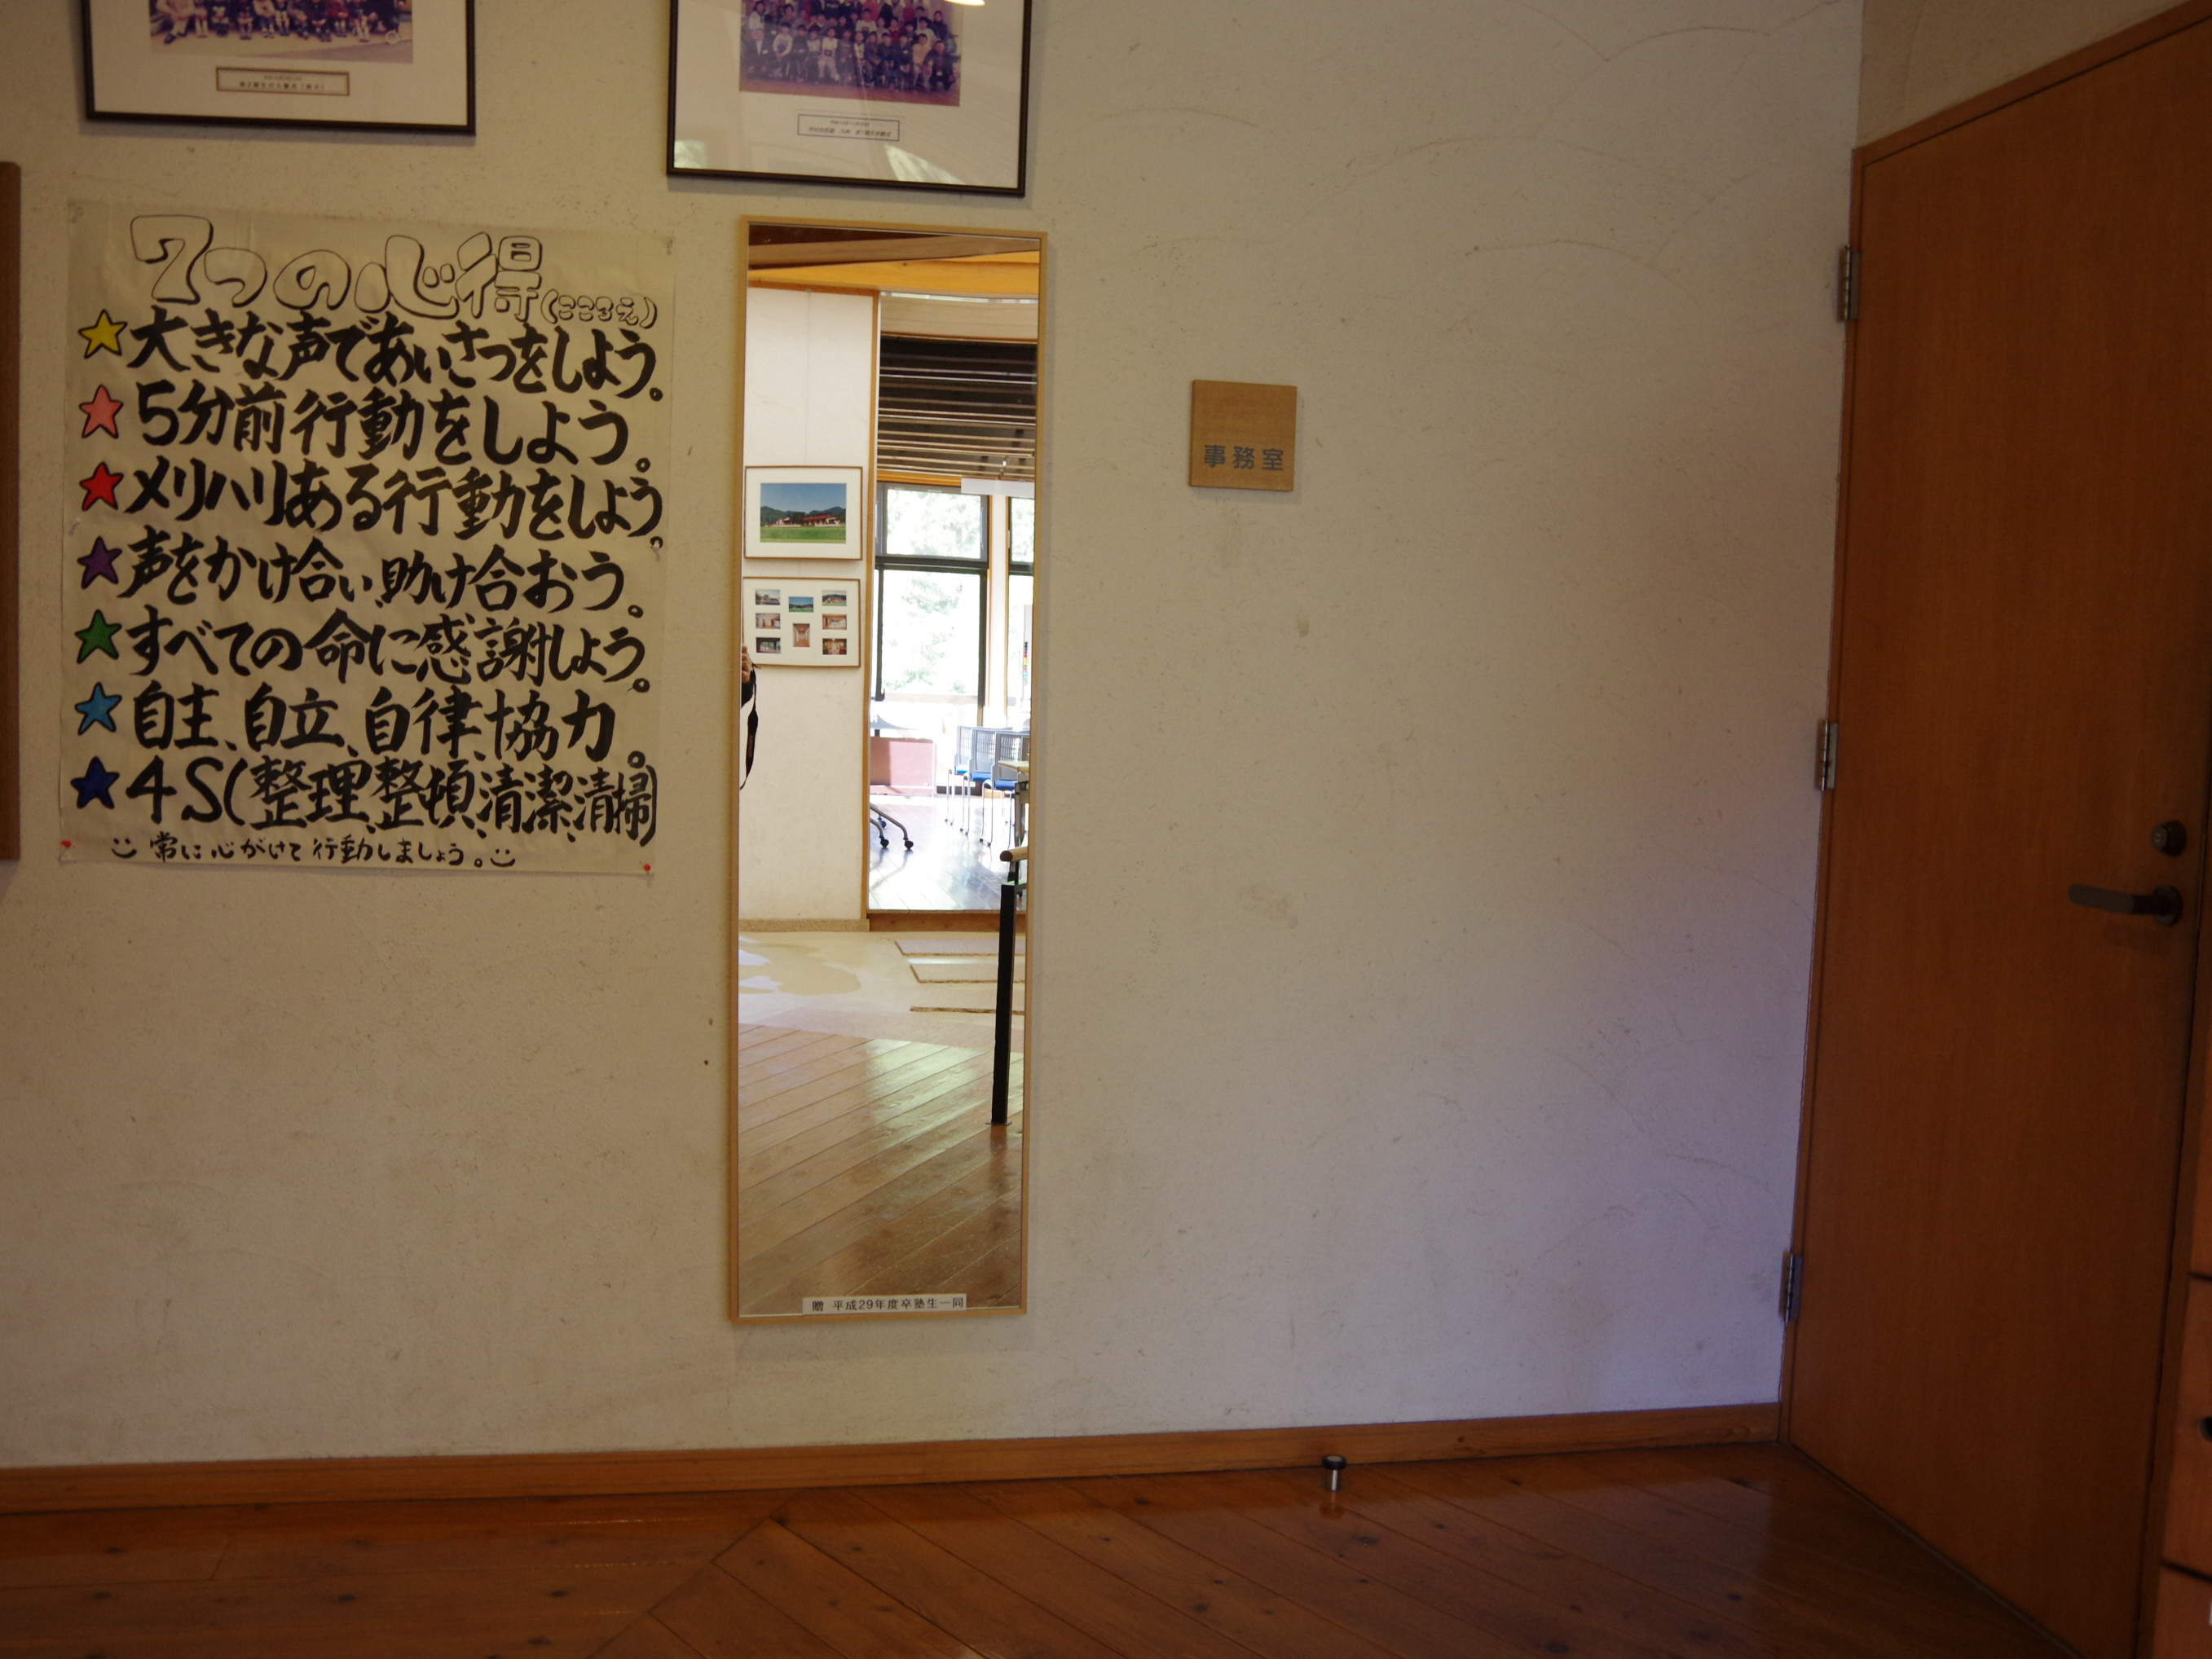 7つの心得(こころえ)
大きな声であいさつをしよう。
5分前行動をしよう。
メリハリある行動をしよう。
声をかけ合い、助け合おう。
すべての命に感謝しよう。
自主、自立、自律、協力。
4S(整理、整頓、清潔、清掃)
常に心がけて行動しましょう。
事務室
贈 平成29年度卒塾生一同